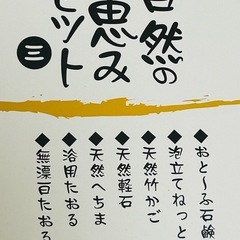 自然の
恵み
セット
三
◆おと〜ふ石鹸
◆泡立てねっと
◆天然竹かご
◆天然軽石
◆天然へちま
◆浴用たおる
◆無漂白たおる